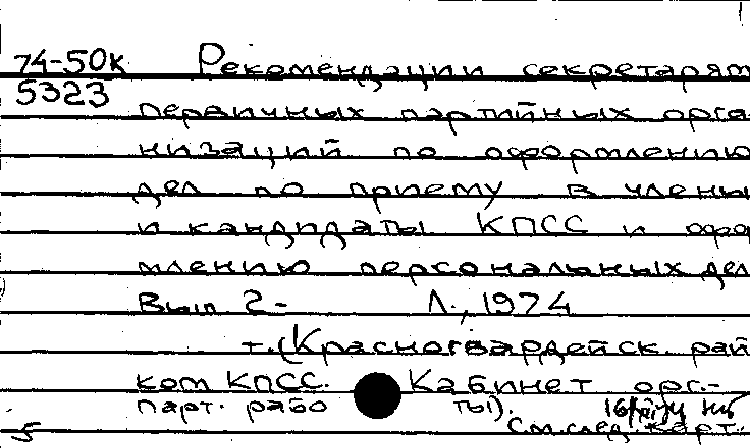 74-50к Рекомендации секретарям
5323 первичных партийных орга
низаций по оформлению
дел по приему в члены
и кандидаты КПСС и офор
млению персональных дел
Вып. 2- Л., 1974
т.(Красногвардейск. рай
ком КПСС. Кабинет орг.-
парт. рабо ты).
См.след.карт.
5